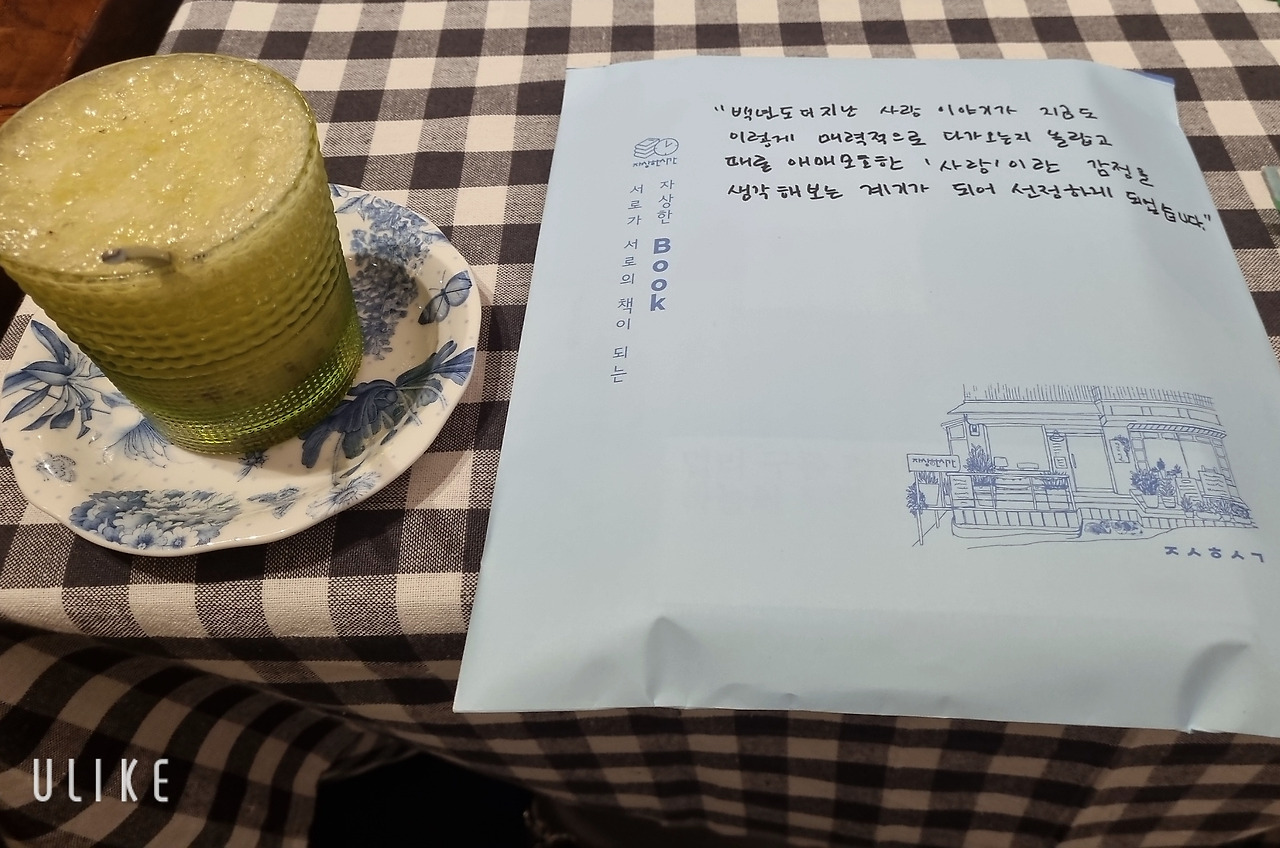 "백년도 더 지난 사랑 이야기가 지금도
이렇게 매력적으로 다가오는지 놀랍고
때론 애매모호한 '사랑'이란 감정을
생각해보는 계기가 되어 선정하게 되었습니다."
자상한시간
자상한 Book
서로가 서로의 책이 되는
자상한시간
ㅈㅅㅎㅅㄱ
ULIKE